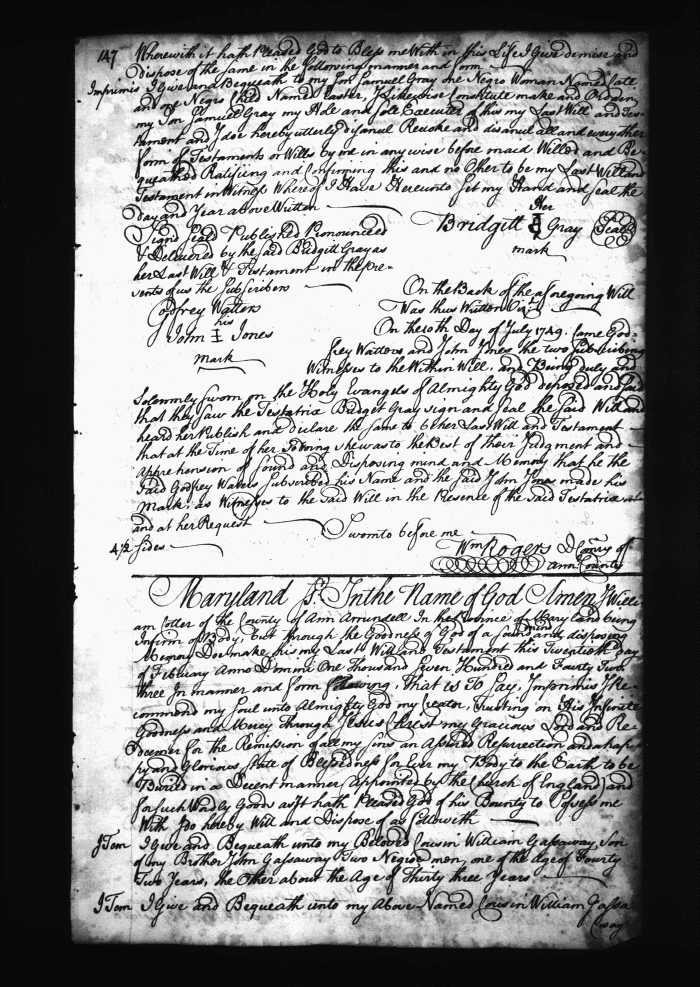 147 Wherewith it hath Pleased God to Bless me With in this Life I Give demise and
Dispose of the same in the following manner and form
Imprimis I Give and Bequeath to my Son Samuel Gray One Negro Woman Named Cate
and one Negro Child Named Easter, I Likewise Constitute make and Ordain
my Son Samuel Gray my Hole and Sole Executer of this my Last Will and Tes-
tament and I doe hereby utterly disanul Revoke and disanul all and every other
form of Testaments or Wills by me in any wise before made Willed and Be-
queathed Ratifiing and Confirming this and no Other to be my Last Will and
Testament in Witness Whereof I Have Hereunto Set my Hand and Seal the
Day and Year above Written
Sign'd Seal'd Published Pronounced
& Delivered by the said Bridgitt Gray as
her Last Will & Testament in the pre-
sents of us the Subscribers
Her
Bridgitt Gray Seal
mark
Godfrey Watters
his
John I Jones
mark
On the Back of the aforegoing Will
Was thus Written Viz
On the 10th Day of July 1749. Came God-
frey Watters and John Jones the two Subscribing
Witnesses to the Within Will, and Being duly and
Solemnly Sworn on the Holy Evangels of Almighty God deposed and said
that they Saw the Testatrix Bridget Gray sign and Seal the said Will and
heard her Publish and Declare the Same to be her Last Will and Testament
that at the Time of her So doing she was to the Best of their Judgment and
apprehension of sound and Disposing mind and Memory that he the
Said Godfrey Waters Subscribed his Name and the said John Jones made his
Mark, as Witnesses to the Said Will in the Presence of the Said Testatrix
and at her Request
Sworn to before me
4/2 sides
Wm Rogers D Com'ry of
Ann County
Maryland Ss. In the Name of God Amen I Willi-
am Cotter of the County of Ann Arundell In the Province of Maryland being
Infirm of Body, but through the Goodness of God of a Sound mind and disposing
Memory Doe make this my Last Will and Testament this Twentieth Day
of February Anno Domini One Thousand Seven Hundred and Fourty Two
three In manner and form following, That is To Say, Imprimis I Re-
commend my Soul unto Almighty God my Creator, Trusting on His Infinite
Goodness and Mercy Through Jesus Christ my Gracious Lord and Re-
deemer for the Remission of all my Sins an Assured Resurrection and a hap-
py and Glorious State of Blessedness for Ever my Body to the Earth to be
Buried in a Decent manner (appointed by the Church of England) and
for such Wordly Goods as It hath Pleased God of his Bounty to Possess me
With I do hereby Will and Dispose of as followith
ITem I Give and Bequeath unto my Beloved Cousin William Gassaway, Son
of my Brother John Gassaway Two Negroe men, one of the Age of Fourty
Two Years, the Other about the Age of Thirty three Years
ITem I Give and Bequeath unto my Above Named Cousin William Gassa
way